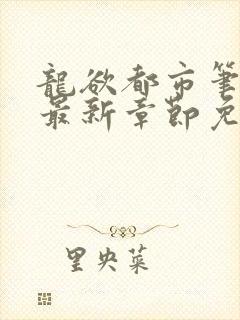 龍欲都市筆
最新章節免
里央菜